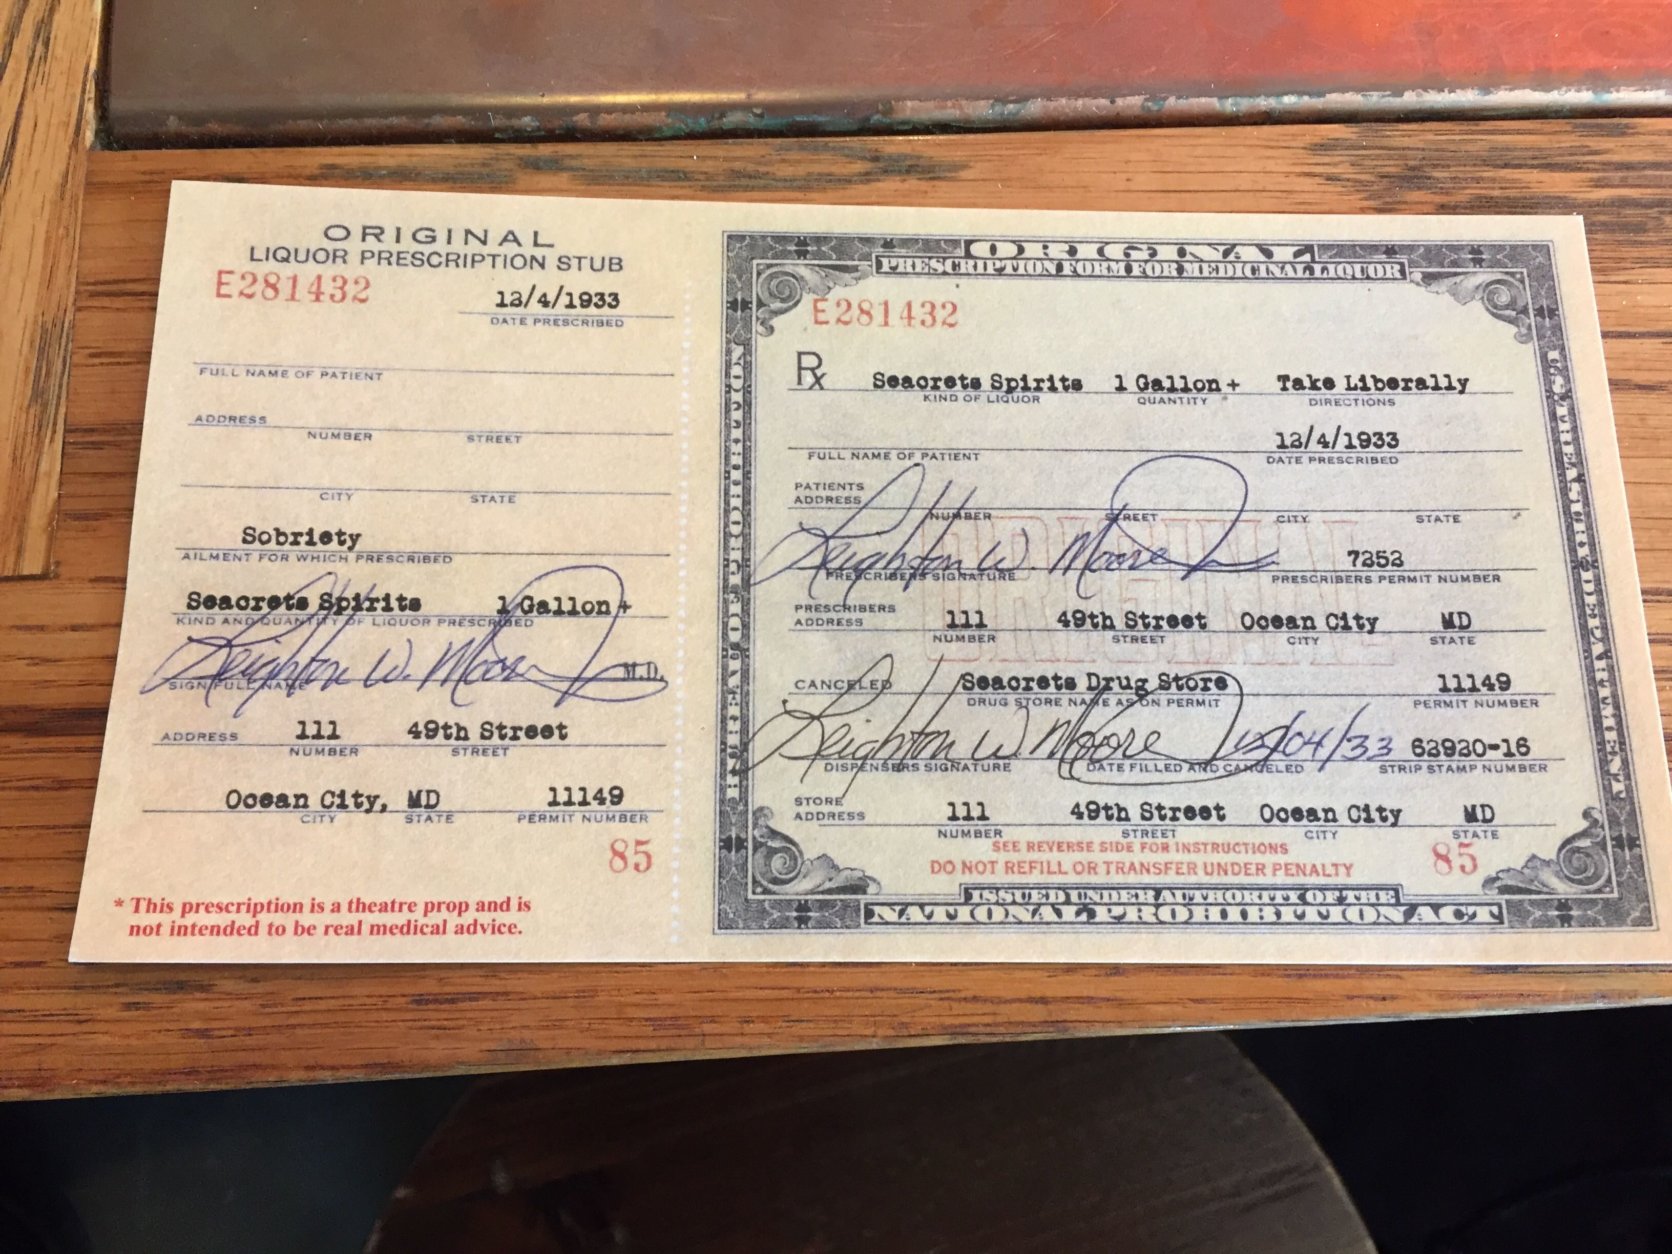 ORIGINAL
LIQUOR PRESCRIPTION STUB
E281432
12/4/1933
DATE PRESCRIBED
FULL NAME OF PATIENT
ADDRESS
NUMBER STREET
CITY STATE
Sobriety
AILMENT FOR WHICH PRESCRIBED
Seacrets Spirits 1 Gallon+
KIND AND QUANTITY OF LIQUOR PRESCRIBED
Leighton W. Moore M.D.
SIGN FULL NAME
ADDRESS 111 49th Street
NUMBER STREET
Ocean City, MD 11149
CITY STATE PERMIT NUMBER
85
* This prescription is a theatre prop and is
not intended to be real medical advice.
ORIGINAL
PRESCRIPTION FORM FOR MEDICINAL LIQUOR
E281432
Rx Seacrets Spirits 1 Gallon+ Take Liberally
KIND OF LIQUOR QUANTITY DIRECTIONS
12/4/1933
FULL NAME OF PATIENT DATE PRESCRIBED
PATIENTS
ADDRESS
NUMBER STREET CITY STATE
ORIGINAL
Leighton W. Moore 7252
PRESCRIBERS SIGNATURE PRESCRIBERS PERMIT NUMBER
PRESCRIBERS
ADDRESS 111 49th Street Ocean City MD
NUMBER STREET CITY STATE
ORIGINAL
CANCELED Seacrets Drug Store 11149
DRUG STORE NAME AS ON PERMIT PERMIT NUMBER
Leighton W. Moore 12/04/33 62920-16
DISPENSERS SIGNATURE DATE FILLED AND CANCELED STRIP STAMP NUMBER
STORE
ADDRESS 111 49th Street Ocean City MD
NUMBER STREET CITY STATE
SEE REVERSE SIDE FOR INSTRUCTIONS
DO NOT REFILL OR TRANSFER UNDER PENALTY
85
ISSUED UNDER AUTHORITY OF THE
NATIONAL PROHIBITION ACT